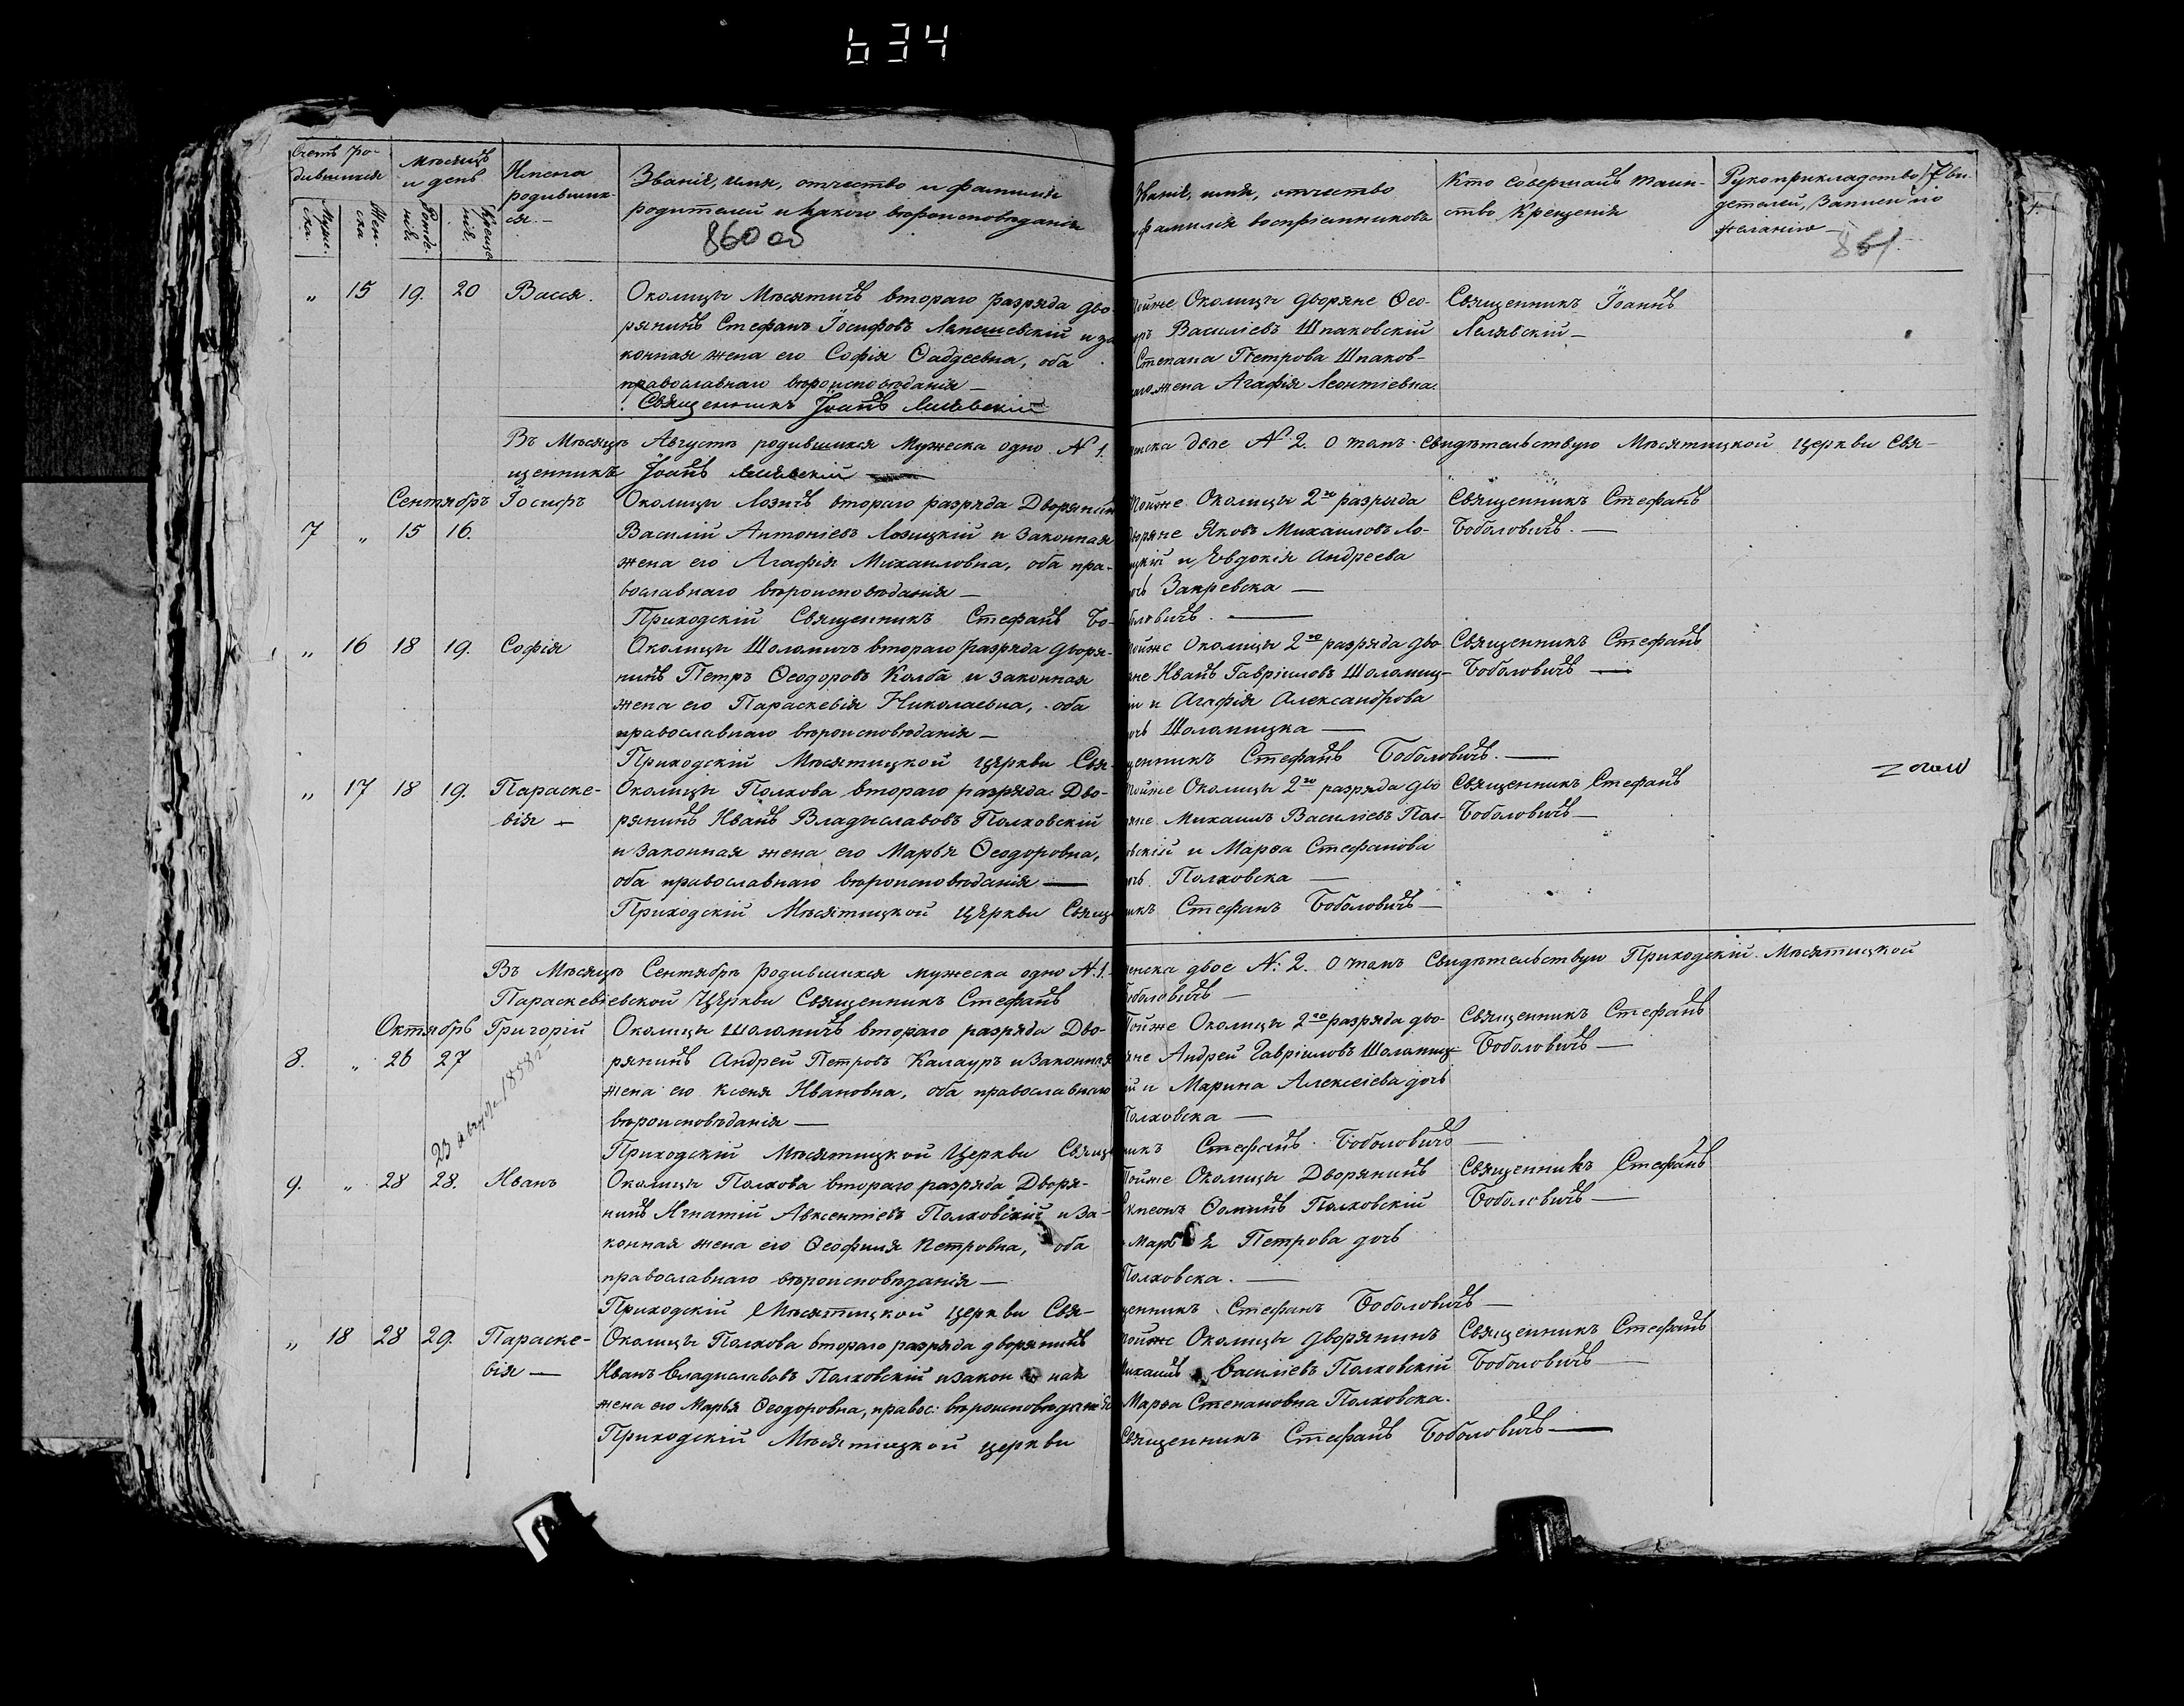 634
Счетъ ро-
дившихся
Муже-
ска.
Жен-
ска
Мѣсяцъ
и день
Рожде-
нія.
Креще-
нія.
Имена
родивших-
ся.—
Званія, имя, отчество и фамилія
родителей и какого вѣроисповѣданія
860 об
Званія, имя, отчество
фамилія воспріемниковъ
Кто совершалъ таин-
ство Крещенія
Рукоприкладство
дѣтелей, записи по
желанію—
861.
" 15 19. 20 Васся.
Околицы Мѣсятичъ втораго разряда дво-
рянинъ Стефанъ Іосифовъ Ляпешевскій и за
конная жена его Софія Фаддеевна, оба
православнаго вѣроисповѣданія—
Священникъ Іоаннъ
Тойже Околицы дворяне Ѳео-
Василіевъ Шпаковскій
Степана Петрова Шпаков-
жена Агафія Леонтіевна.
Священникъ Іоаннъ
Въ Мѣсяцѣ Августѣ родившихся Мужеска одно № 1.
женска двое № 2. О томъ свидѣтельствую Мѣсятицкой церкви Свя-
щенникъ Іоаннъ
Сентябрь
7 " 15 16. Іосифъ
Околицы Лозичъ втораго разряда Дворянинъ
Василій Антоніевъ Лозицкій и законная
жена его Агафія Михаиловна, оба пра-
вославнаго вѣроисповѣданія—
Приходскій Священникъ Стефанъ Бо-
боловичъ.—
Тойже Околицы 2го разряда
Дворяне Яковъ Михаиловъ Ло-
зицкій и Евдокія Андреева
дочь Закревска—
Священникъ Стефанъ
Боболовичъ.—
" 16 18 19. Софія
Околицы Шоломичъ втораго разряда дворя-
нинъ Петръ Ѳеодоровъ Колба и законная
жена его Параскевія Николаевна, оба
православнаго вѣроисповѣданія—
Приходскій Мѣсятицкой церкви Свя-
щенникъ Стефанъ Боболовичъ.—
Тойже Околицы 2го разряда дво
ряне Иванъ Гавріиловъ Шоломиц-
кій и Агафія Александрова
дочь Шоломицка—
Священникъ Стефанъ
Боболовичъ—
" 17 18 19. Параске-
вія—
Околицы Полхова втораго разряда Дво-
рянинъ Иванъ Владиславовъ Полховскій
и законная жена его Марья Ѳеодоровна,
оба православнаго вѣроисповѣданія—
Приходскій Мѣсятицкой Церкви Священ
никъ Стефанъ Боболовичъ—
Тойже Околицы 2го разряда дво
ряне Михаилъ Василіевъ Пол-
ховскій и Марѳа Стефанова
дочь Полховска—
Священникъ Стефанъ
Боболовичъ—
Въ Мѣсяцѣ Сентябрѣ родившихся мужеска одно № 1.
женска двое №: 2. О томъ Свидѣтельствую Приходскій Мѣсятицкой
Параскевіевской Церкви Священникъ Стефанъ
Боболовичъ—
Октябрь
8. " 26 27 Григорій
23 августа 1858г
Околицы Шоломичъ втораго разряда Дво-
рянинъ Андрей Петровъ Калауръ и законная
жена его Ксеня Ивановна, оба православнаго
вѣроисповѣданія—
Приходскій Мѣсятицкой Церкви Священ
никъ Стефанъ Боболовичъ—
Тойже Околицы 2го разряда дво-
ряне Андрей Гавріиловъ Шоломиц-
кій и Марина Алексіева дочь
Полховска—
Священникъ Стефанъ
Боболовичъ—
9. " 28 28. Иванъ
Околицы Полхова втораго разряда Дворя-
нинъ Игнатій Авксентіевъ Полховскій и за-
конная жена его Ѳеофиля Петровна, оба
православнаго вѣроисповѣданія—
Приходскій Мѣсятицкой церкви Свя-
щенникъ Стефанъ Боболовичъ—
Тойже Околицы Дворянинъ
Симеонъ Ѳоминъ Полховскій
Марья Петрова дочь
Полховска.—
Священникъ Стефанъ
Боболовичъ—
" 18 28 29. Параске-
вія—
Околицы Полхова втораго разряда дворянинъ
Иванъ Владиславовъ Полховскій и законная
жена его Марья Ѳеодоровна, правос: вѣроисповѣданія
Приходскій Мѣсятицкой церкви
Священникъ Стефанъ Боболовичъ—
Тойже Околицы дворянинъ
Михаилъ Василіевъ Полховскій
Марѳа Степановна Полховска.
Священникъ Стефанъ
Боболовичъ—